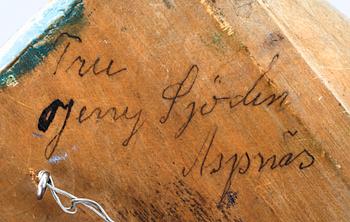 Fru
Jenny Sjödin
Aspnäs